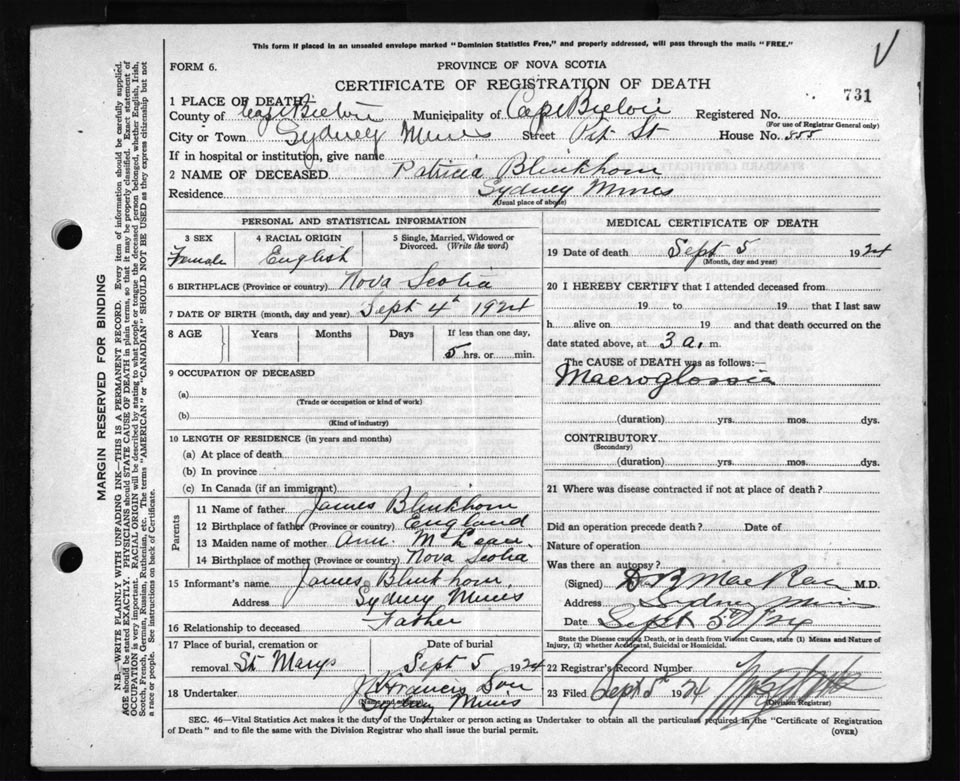 This form if placed in an unsealed envelope marked "Dominion Statistics Free," and properly addressed, will pass through the mails "FREE."
FORM 6.
PROVINCE OF NOVA SCOTIA
CERTIFICATE OF REGISTRATION OF DEATH
731
1 PLACE OF DEATH
County of Cape Breton Municipality of Cape Breton Registered No.
(For use of Registrar General only)
City or Town Sydney Mines Street Pit St House No. 555
If in hospital or institution, give name
2 NAME OF DECEASED Patricia Blinkhorn
Residence Sydney Mines
(Usual place of abode)
PERSONAL AND STATISTICAL INFORMATION
3 SEX
Female
4 RACIAL ORIGIN
English
5 Single, Married, Widowed or Divorced. (Write the word)
6 BIRTHPLACE (Province or country) Nova Scotia
7 DATE OF BIRTH (month, day and year) Sept 4th 1924
8 AGE Years Months Days If less than one day,
5 hrs. or min.
9 OCCUPATION OF DECEASED
(a)
(Trade or occupation or kind of work)
(b)
(Kind of industry)
10 LENGTH OF RESIDENCE (in years and months)
(a) At place of death
(b) In province
(c) In Canada (if an immigrant)
Parents
11 Name of father James Blinkhorn
12 Birthplace of father (Province or country) England
13 Maiden name of mother Ann McLean
14 Birthplace of mother (Province or country) Nova Scotia
15 Informant's name James Blinkhorn
Address Sydney Mines
16 Relationship to deceased Father
17 Place of burial, cremation or removal St Marys Date of burial Sept 5 1924
18 Undertaker J Francis Son
(Name and address) Sydney Mines
MEDICAL CERTIFICATE OF DEATH
19 Date of death Sept 5 1924
(Month, day and year)
20 I HEREBY CERTIFY that I attended deceased from
19 to 19 that I last saw
h alive on 19 and that death occurred on
date stated above, at 3 a. m.
The CAUSE OF DEATH was as follows:—
Macroglossia
(duration) yrs. mos. dys.
CONTRIBUTORY
(Secondary)
(duration) yrs. mos. dys.
21 Where was disease contracted if not at place of death?
Did an operation precede death? Date of
Nature of operation
Was there an autopsy?
(Signed) D B MacRae M.D.
Address Sydney Mines
Date Sept 5/24
State the Disease causing Death, or in death from Violent Causes, state (1) Means and Nature of
Injury, (2) whether Accidental, Suicidal or Homicidal.
22 Registrar's Record Number
23 Filed Sept 5th 1924
(Division Registrar)
SEC. 46—Vital Statistics Act makes it the duty of the Undertaker or person acting as Undertaker to obtain all the particulars required in the "Certificate of Registration
of Death" and to file the same with the Division Registrar who shall issue the burial permit. (OVER)
MARGIN RESERVED FOR BINDING
N.B.—WRITE PLAINLY, WITH UNFADING INK—THIS IS A PERMANENT RECORD. Every item of information should be carefully supplied.
AGE should be stated EXACTLY. PHYSICIANS should STATE CAUSE OF DEATH in plain terms, so that it may be properly classified. Exact statement of
OCCUPATION is very important. RACIAL ORIGIN will be described by stating to what people or tongue the deceased person belonged, whether English, Irish,
Scotch, French, German, Russian, Ruthenian, etc. The terms "AMERICAN" or "CANADIAN" SHOULD NOT BE USED as they express citizenship but not
a race or people. See instructions on back of Certificate.